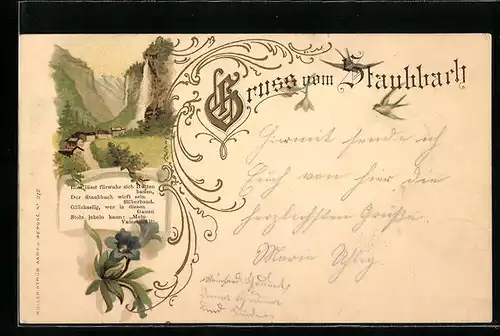 Gruss vom Staubbach
Hier lässt fürwahr sich Hütten
bauen,
Der Staubbach wirft sein
Silberband.
Glückselig, wer in diesen
Gauen
Stolz jubeln kann: „Mein
Hiermit sende ich
Euch von hier die
herzlichsten Grüße.
Marie
MÜLLER & TRÜB AARAU